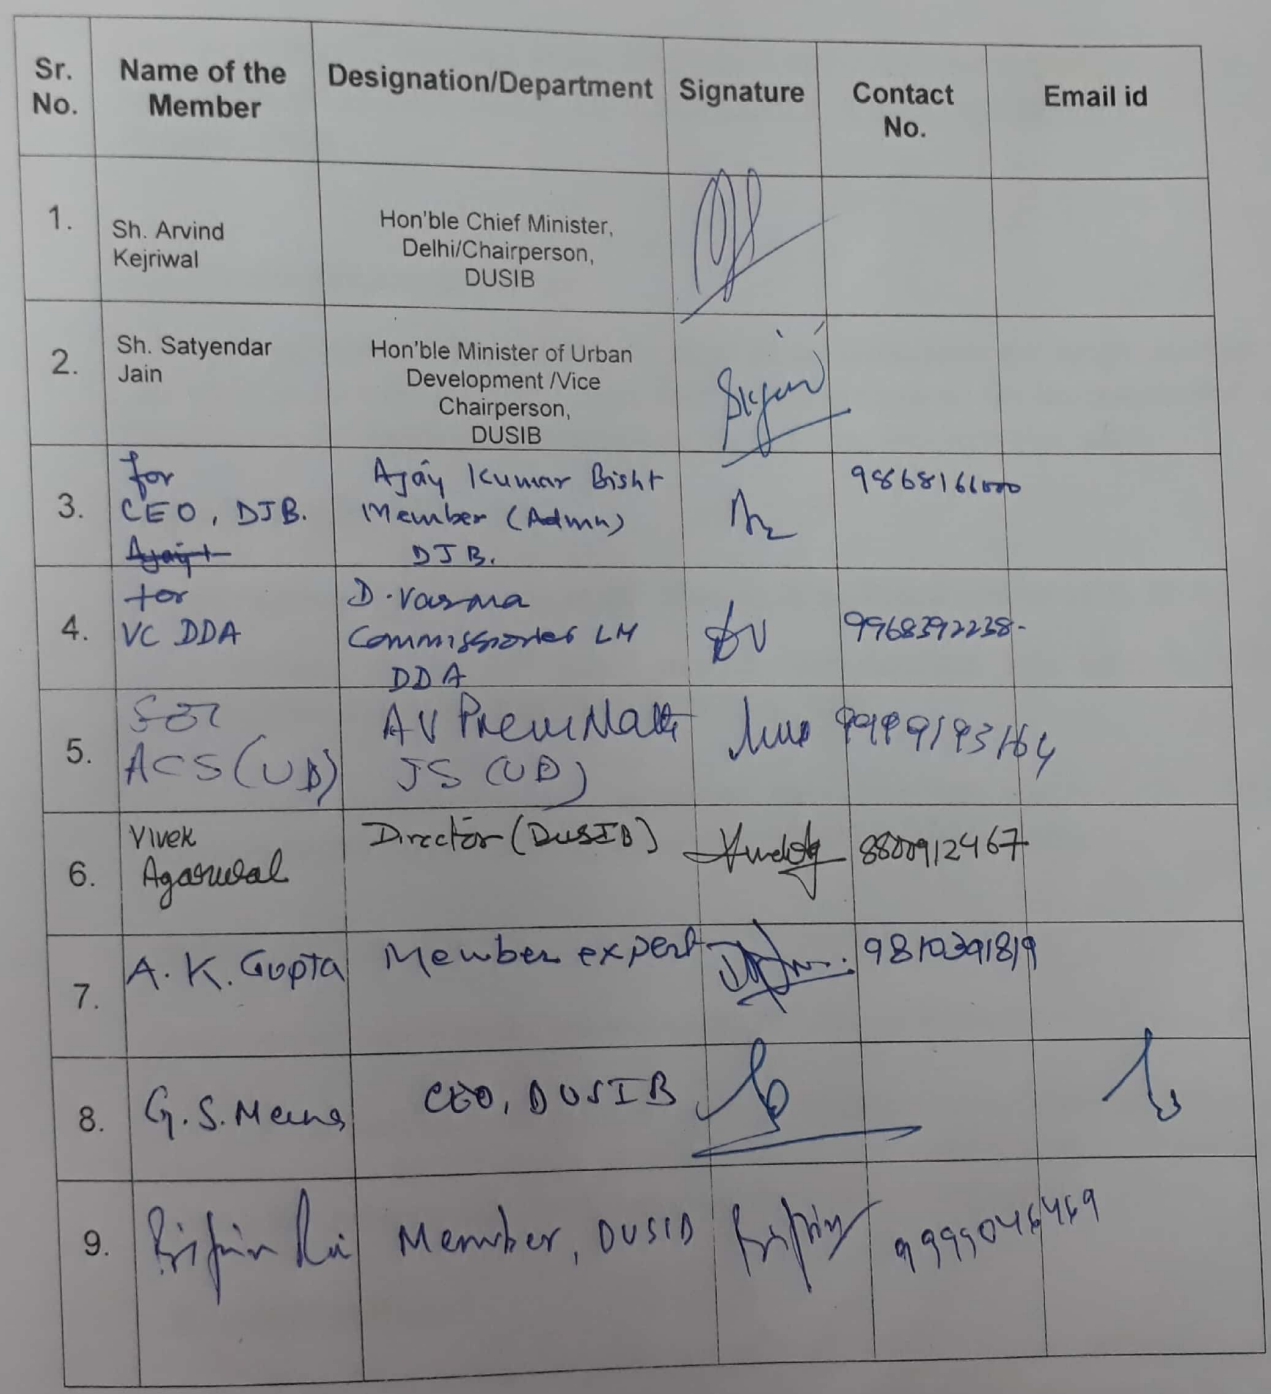 Sr. No.
Name of the Member
Designation/Department
Signature
Contact No.
Email id
1.
Sh. Arvind
Kejriwal
Hon'ble Chief Minister,
Delhi/Chairperson,
DUSIB
2.
Sh. Satyendar
Jain
Hon'ble Minister of Urban
Development /Vice
Chairperson,
DUSIB
3.
for
CEO, DJB.
Ajay Kumar Bisht
Member (Admn)
DJB.
4.
for
VC DDA
D. Varma
Commissioner LM
DDA
DV
9968392238-
5.
For
ACS (UD)
AV Prem Nath
JS (UD)
6.
Vivek
Agarwal
Director (DUSIB)
8800912467
7.
A. K. Gupta
Member expert
9810391819
8.
G. S. Meena
CEO, DUSIB
9.
Bipin Rai
Member, DUSIB